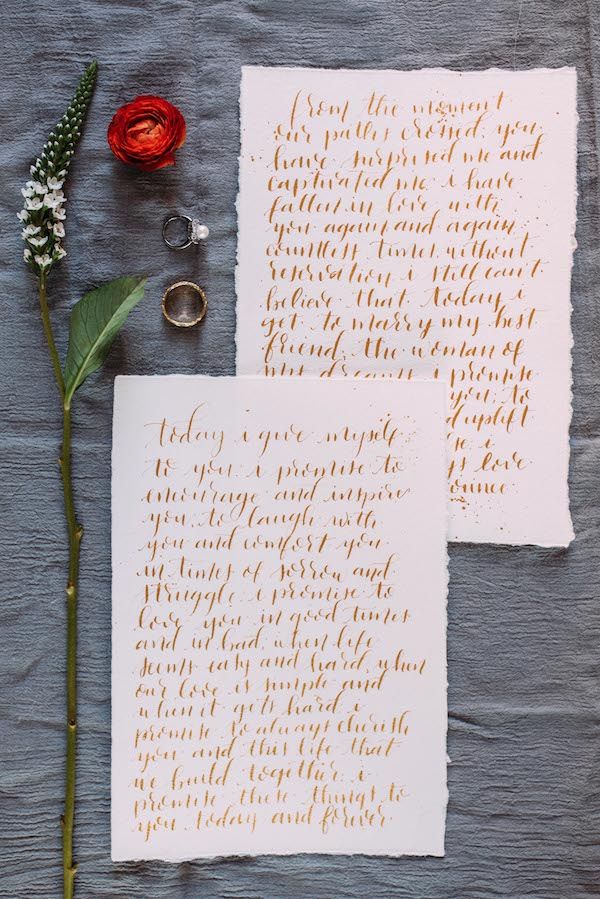 from the moment
our paths crossed, you
have surprised me and
captivated me. i have
fallen in love with
you again and again
countless times without
reservation. i still can't
believe that today i
get to marry my best
friend, the woman of
my dreams. i promise
you; to
uplift
i
love
today i give myself
to you. i promise to
encourage and inspire
you, to laugh with
you and comfort you
in times of sorrow and
struggle. i promise to
love you in good times
and in bad, when life
seems easy and hard, when
our love is simple and
when it gets hard. i
promise to always cherish
you and this life that
we build together. i
promise these things to
you, today and forever.